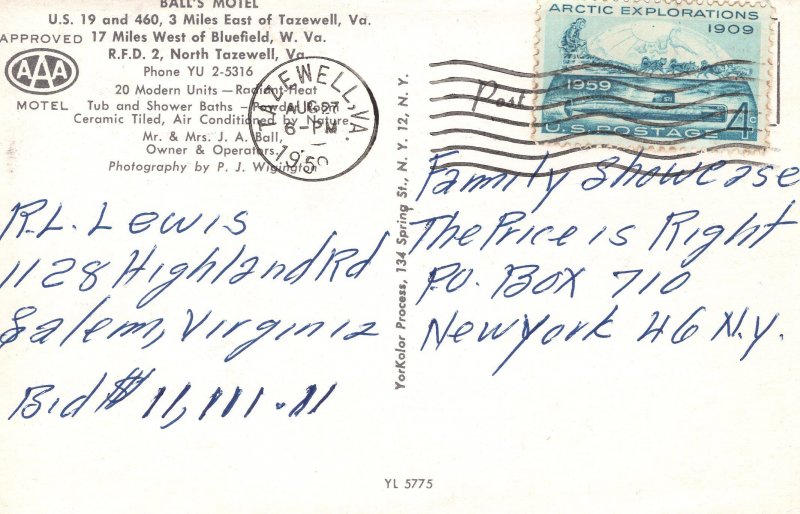 BALL'S MOTEL
U.S. 19 and 460, 3 Miles East of Tazewell, Va.
17 Miles West of Bluefield, W. Va.
R.F.D. 2, North Tazewell, Va.
Phone YU 2-5316
20 Modern Units — Radiant Heat
Tub and Shower Baths — Powder Room
Ceramic Tiled, Air Conditioned by Nature
Mr. & Mrs. J. A. Ball,
Owner & Operators.
Photography by P. J. Wigington
APPROVED
AAA
MOTEL
TAZEWELL, VA.
AUG 27
6-PM
195
Post
ARCTIC EXPLORATIONS
1909
1959
4c
U.S. POSTAGE
R.L. Lewis
1128 Highland Rd
Salem, Virginia
Bid $ 11,111.11
YorKolor Process, 134 Spring St., N. Y. 12, N. Y.
Family Showcase
The Price is Right
P.O. Box 710
New York 46 N.Y.
YL 5775